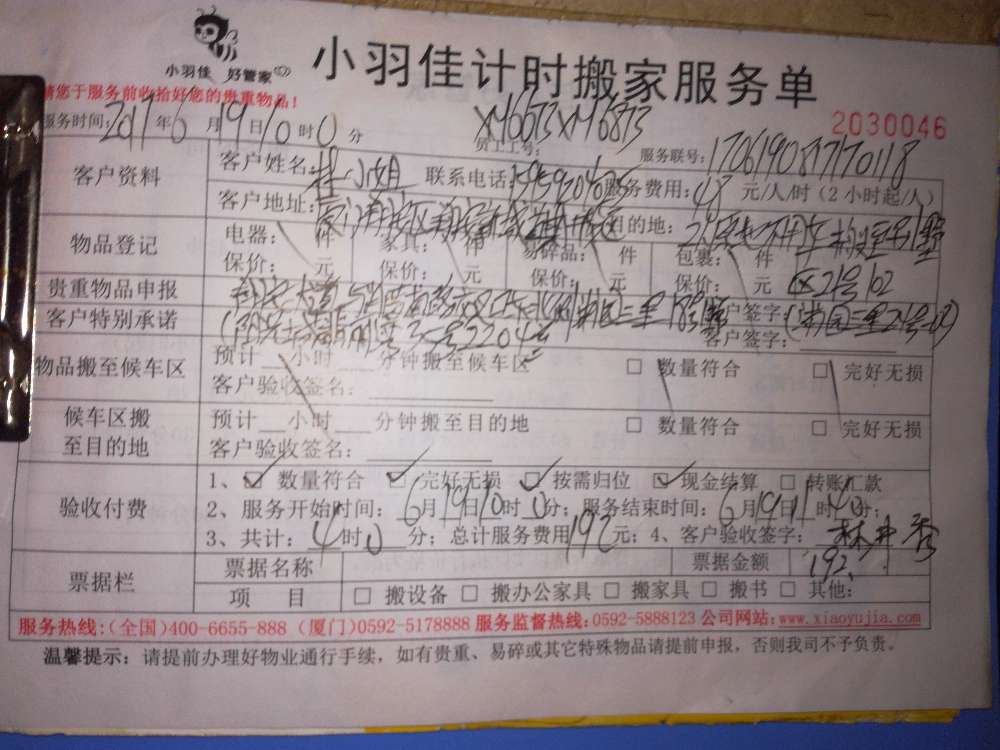 小羽佳 好管家
小羽佳计时搬家服务单
请您于服务前收拾好您的贵重物品!
2030046
服务时间:2017年6月19日10时0分 员工工号: XM6673 XM6873 服务联号:170619081770118
客户资料 客户姓名: 小姐 联系电话: 服务费用:48元/人/时(2小时起/人)
客户地址: 目的地:
物品登记 电器: 件 家具: 件 易碎品: 件 包裹: 件
保价: 元 保价: 元 保价: 元 保价: 元 区21号102
贵重物品申报 客户签字:
客户特别承诺 2204 客户签字:
物品搬至候车区 预计__小时__分钟搬至候车区 □ 数量符合 □ 完好无损
客户验收签名:
候车区搬至目的地 预计__小时__分钟搬至目的地 □ 数量符合 □ 完好无损
客户验收签名:
验收付费 1、☑ 数量符合 ☑ 完好无损 ☑ 按需归位 ☑ 现金结算 □ 转账汇款
2、服务开始时间:6月19日10时0分;服务结束时间:6月19日11时40分;
3、共计:4时0分;总计服务费用192元;4、客户验收签字:
票据栏 票据名称 票据金额 192.
项 目 □ 搬设备 □ 搬办公家具 □ 搬家具 □ 搬书 □ 其他:
服务热线:(全国)400-6655-888 (厦门)0592-5178888 服务监督热线:0592-5888123 公司网站:www.xiaoyujia.com
温馨提示:请提前办理好物业通行手续,如有贵重、易碎或其它特殊物品请提前申报,否则我司不予负责。